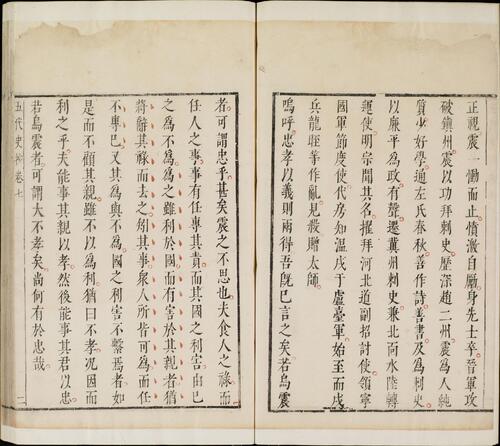 正視震一慟而止憤激自勵身先士卒晉軍攻
破鎮州震以功拜刺史歷深趙二州震為人純
質少好學通左氏春秋善作詩善書及為刺史
以廉平為政有聲遷冀州刺史兼北面水陸轉
運使明宗聞其名擢拜河北道副招討使領寧
國軍節度使代房知溫戍于盧臺軍始至而戍
兵龍晊等作亂見殺贈太師
嗚呼忠孝以義則兩得吾既已言之矣若烏震
者可謂忠乎甚矣震之不思也夫食人之祿而
任人之事事有任專其責而其國之利害由已
之為不為為之雖利於國而有害於其親者猶
將辭其祿而去之矧其事衆人所皆可為而任
不專已又其為與不為國之利害不繫焉者如
是而不顧其親雖不以為利猶曰不孝况因而
利之乎夫能事其親以孝然後能事其君以忠
若烏震者可謂大不孝矣尚何有於忠哉
五代史抄卷七
二